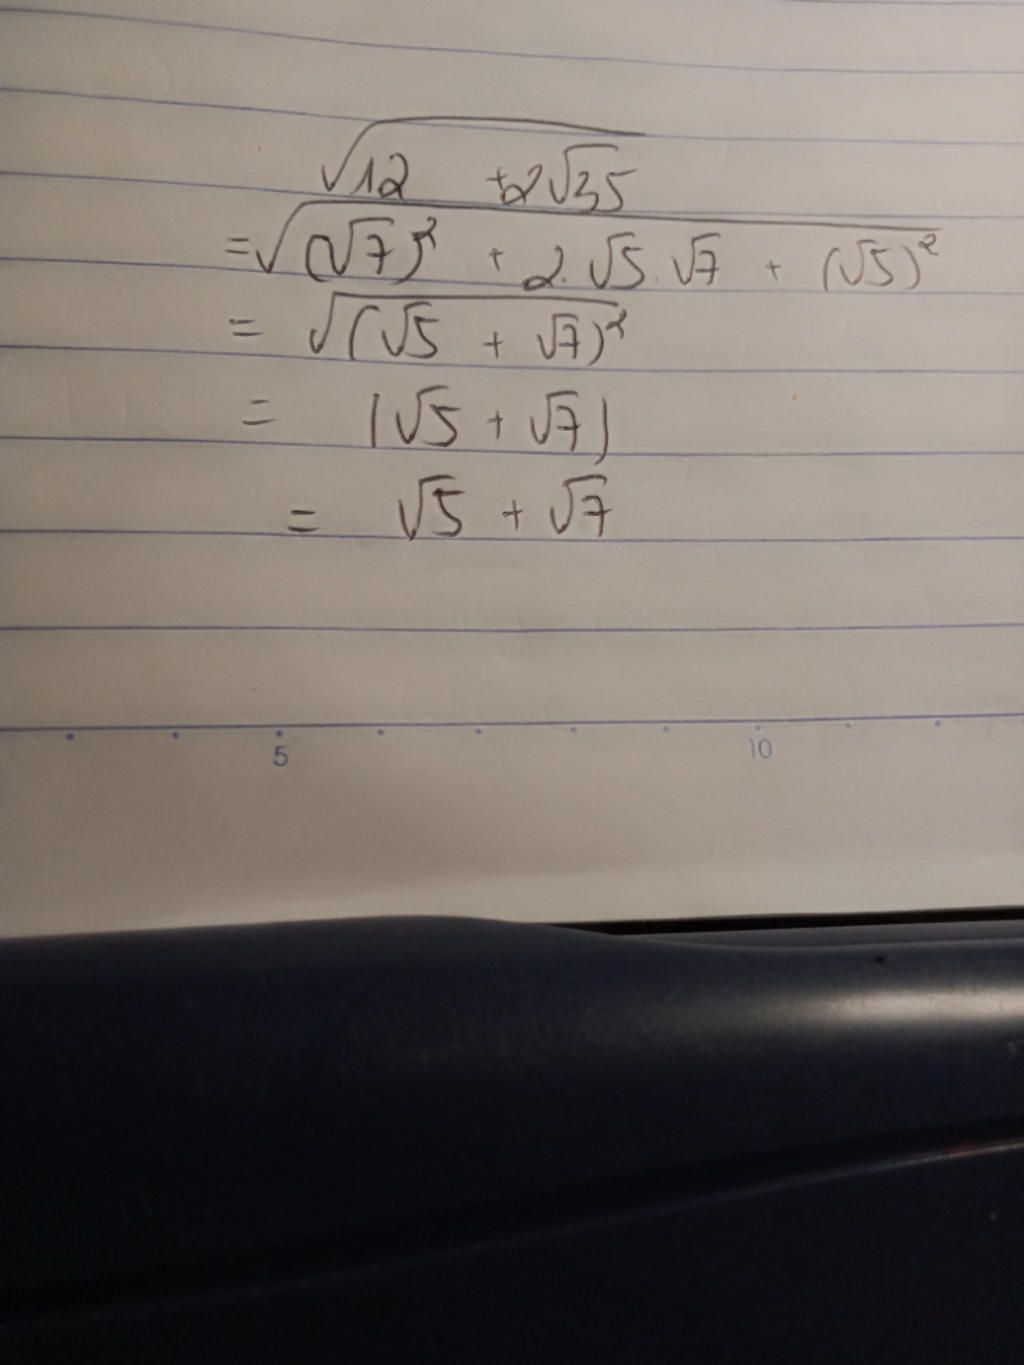 √12 +2√35
=√(√7)² + 2.√5.√7 + (√5)²
= √(√5 + √7)²
= |√5 + √7|
= √5 + √7
5 10